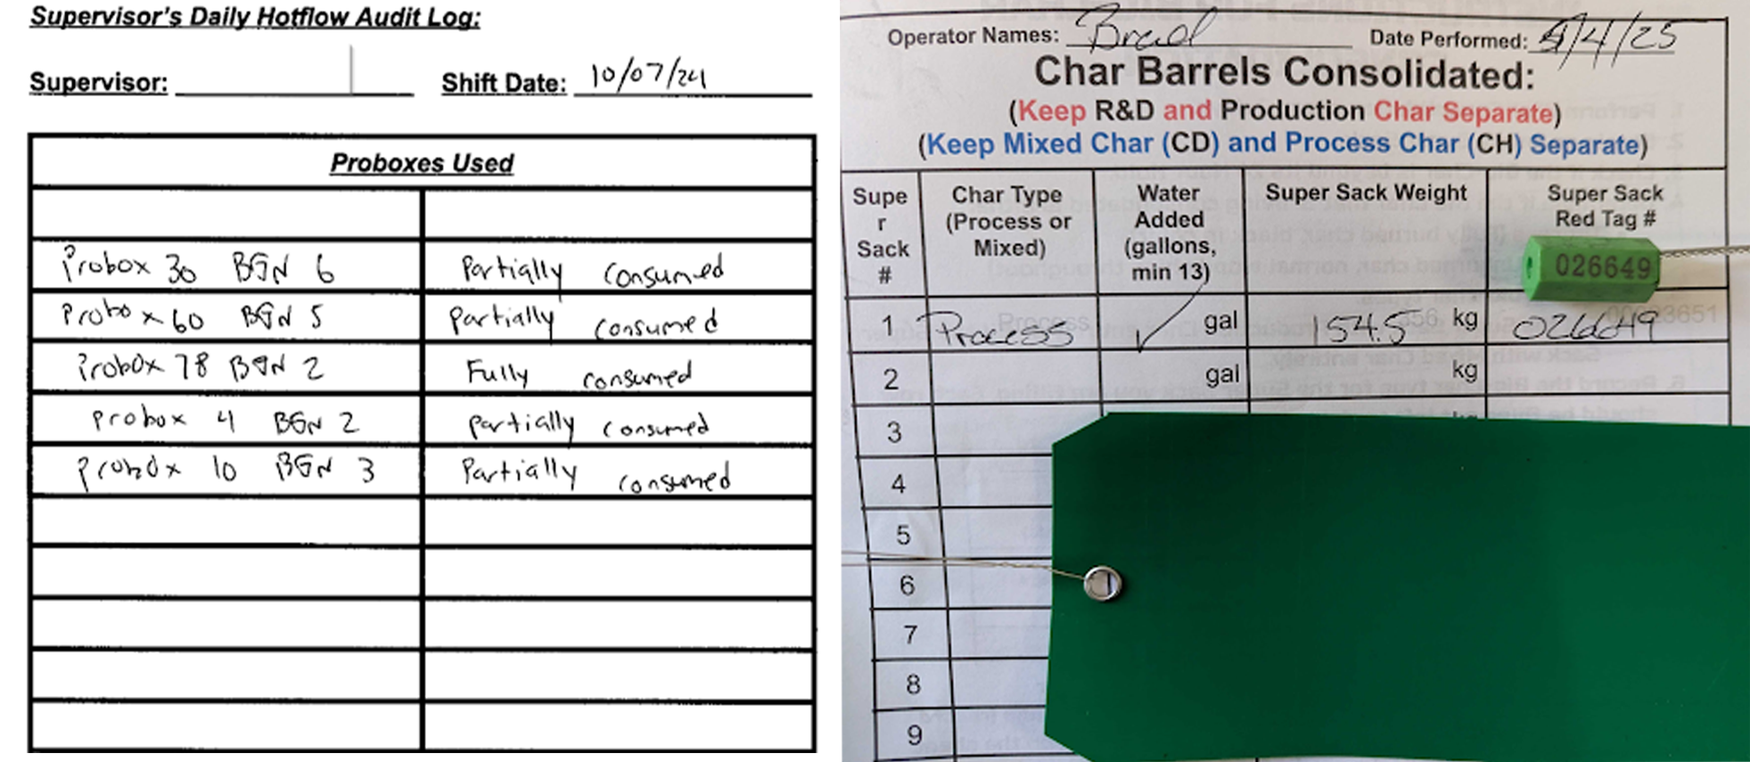 Supervisor's Daily Hotflow Audit Log:
Supervisor: Shift Date: 10/07/24
Proboxes Used
Probox 30 BGN 6 Partially consumed
Probox 60 BGN 5 Partially consumed
Probox 78 BGN 2 Fully consumed
Probox 4 BGN 2 Partially consumed
Probox 10 BGN 3 Partially consumed
Operator Names: Brad Date Performed: 4/25
Char Barrels Consolidated:
(Keep R&D and Production Char Separate)
(Keep Mixed Char (CD) and Process Char (CH) Separate)
Supe
r
Sack
#
Char Type
(Process or
Mixed)
Water
Added
(gallons,
min 13)
Super Sack Weight
Super Sack
Red Tag #
026649
1 Process ✓ gal 154.5 kg 026649
2 gal kg
3
4
5
6
7
8
9